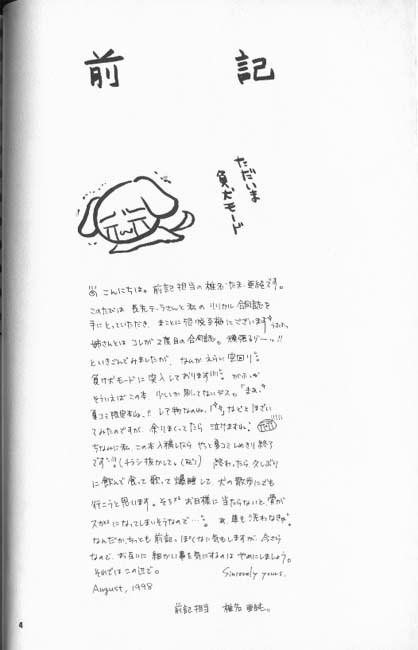 前記
ただいま
負犬モード
こんにちは。前記担当の椎名・たま・亜純です。
このたびは 長先テーラさんと私の リリカル合同誌を
手にとっていただき、まことに恐悦至極にございます
姉さんとは コレが2度目の合同誌。頑張るゾーっ!!
といきごんでみましたが、なんか えらい空回り
負けボモードに突入しております がふっ
そういえばこの本 少ししか刷してないデス。「まあ、
てみたのですが、余りまくってたら 泣けますね。
ちなみに私、この本入稿したら やっと夏コミしめきり終了
です (チラシ抜かして。) 終わったら 久しぶり
に飲んで 食って 歌って 爆睡して、犬の散歩にでも
行こうと思います。そろそろ お日様に当たらないと、骨が
スカスカになってしまいそうなので… あ、車も洗わなきゃ。
なんだか、ちっとも前記っぽくない気もしますが、今さら
なので、お互いに 細かい事を気にするのは やめにしましょう。
それでは この辺で。 Sincerely yours.
August, 1998
前記担当 椎名 亜純。
4